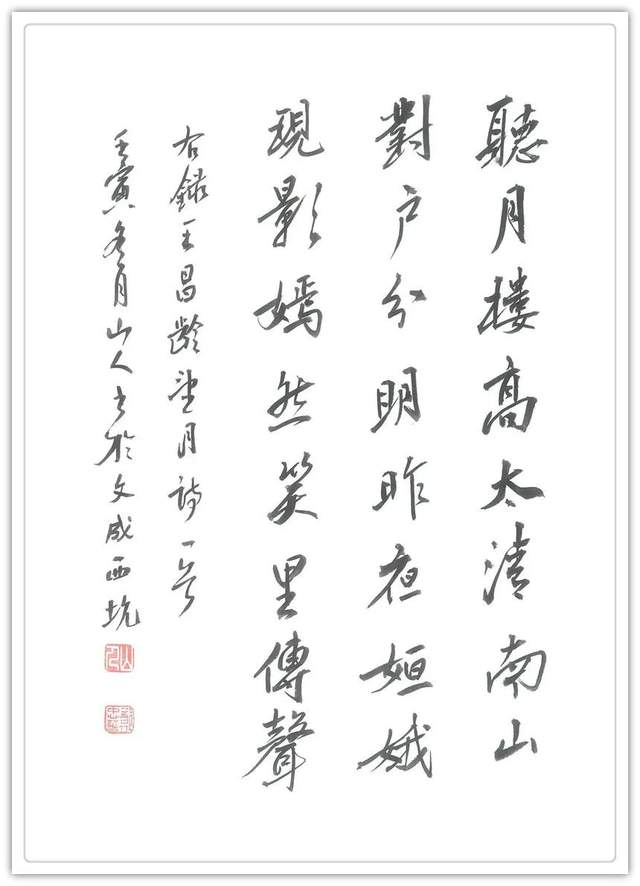 聽月樓高太清南山
對户分明昨夜姮娥
現影嫣然笑里傳聲
右録王昌齡望月詩一首
壬寅冬月山人書於文成西坑
山人